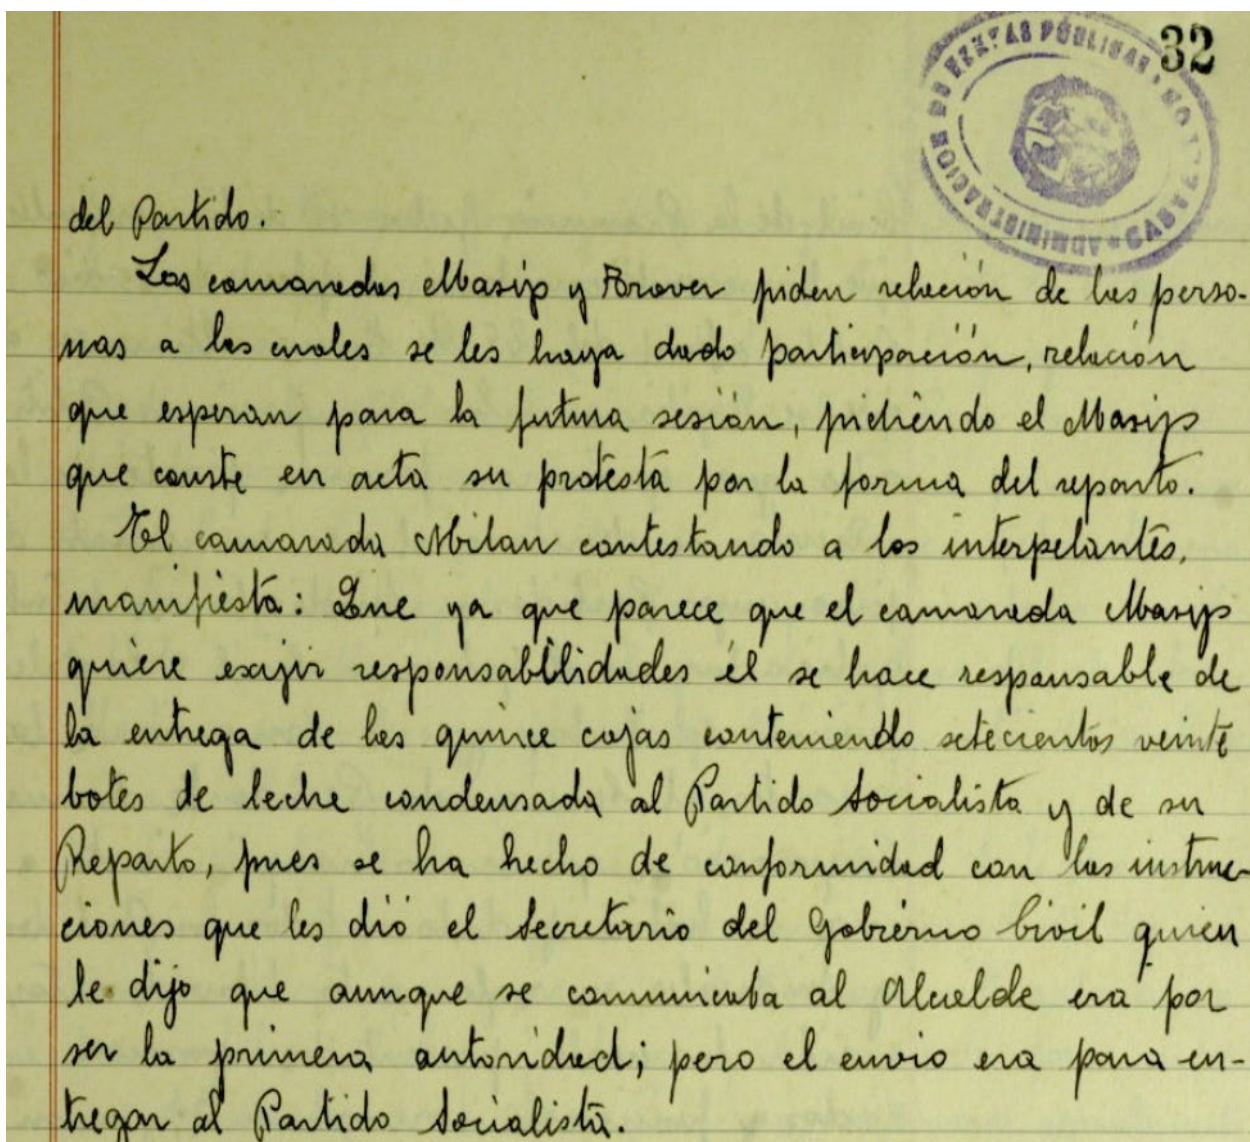 32
ADMINISTRACION DE RENTAS PÚBLICAS
del Partido.
Los camaradas Masip y Brover piden relación de las perso-
nas a las cuales se les haya dado participación, relación
que esperan para la futura sesión, pidiendo el Masip
que conste en acta su protesta por la forma del reparto.
El camarada Milan contestando a los interpelantes,
manifiesta: Que ya que parece que el camarada Masip
quiere exijir responsabilidades él se hace responsable de
la entrega de las quince cajas conteniendo setecientos veinte
botes de leche condensada al Partido Socialista y de su
Reparto, pues se ha hecho de conformidad con las instruc-
ciones que les dió el Secretario del Gobierno Civil quien
le dijo que aunque se comunicaba al Alcalde era por
ser la primera autoridad; pero el envio era para en-
tregar al Partido Socialista.